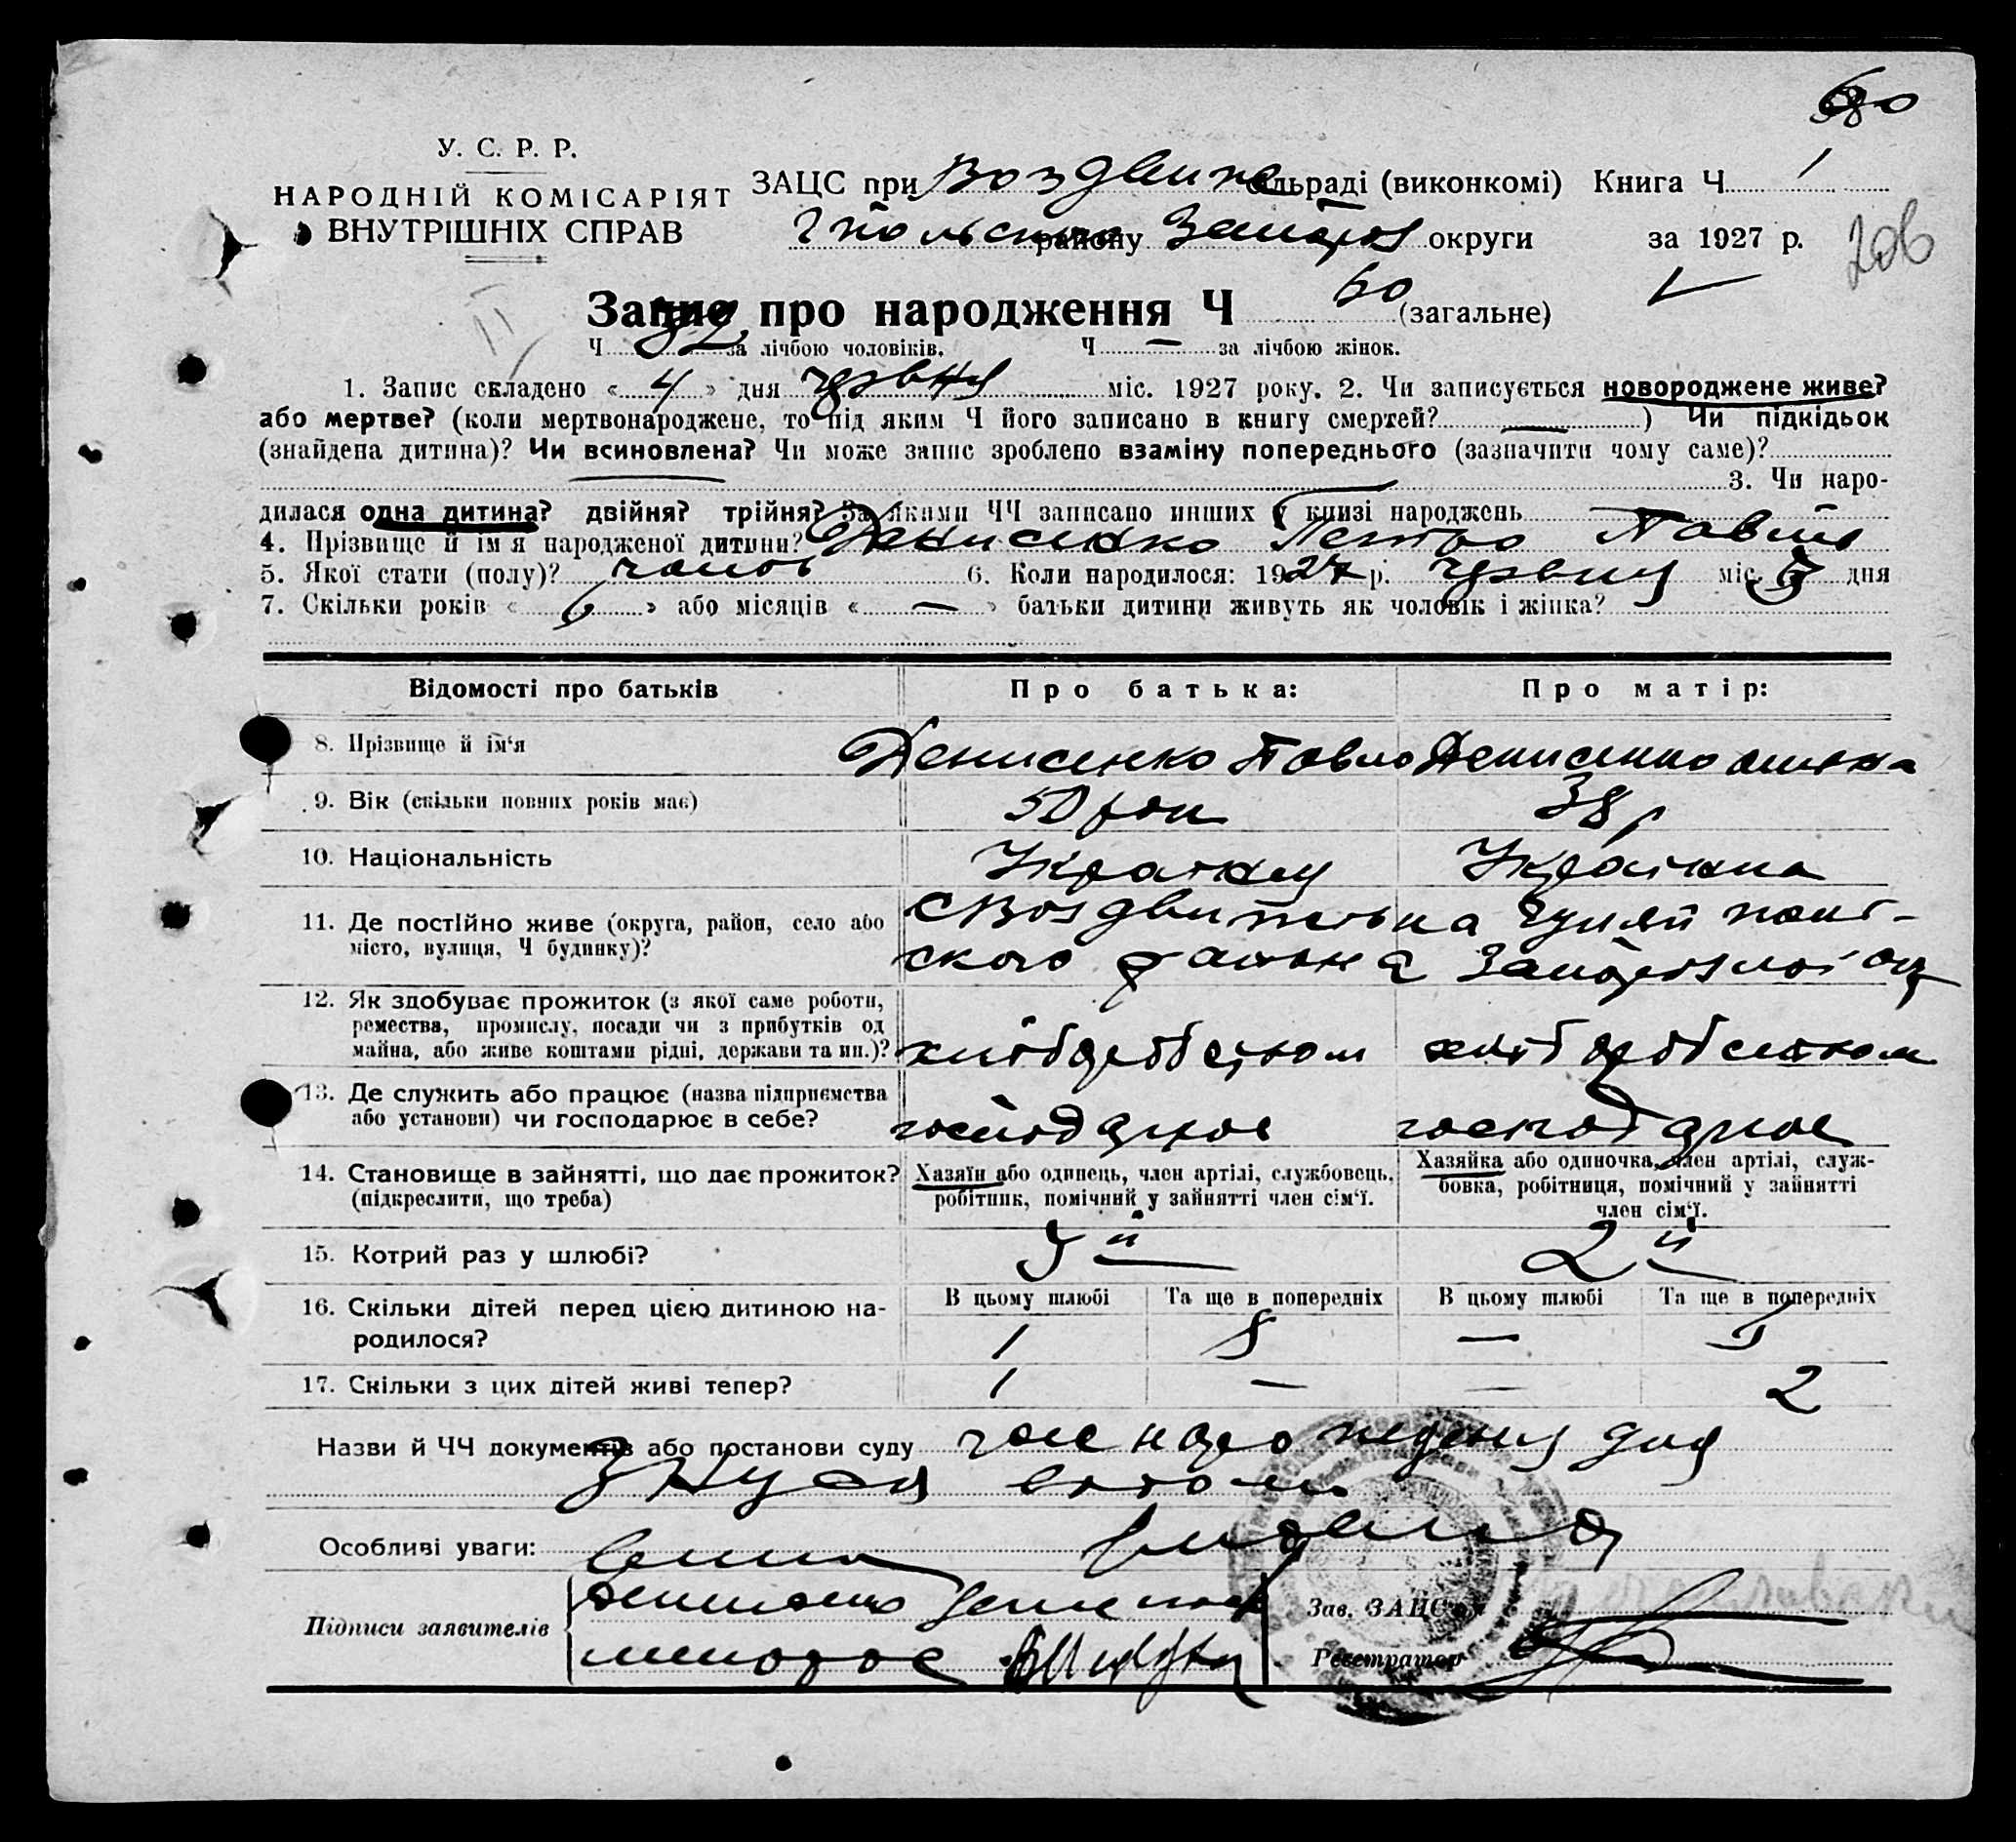 У. С. Р. Р.
НАРОДНІЙ КОМІСАРІЯТ
ВНУТРІШНІХ СПРАВ
ЗАЦС при Воздвиже сільраді (виконкомі) Книга Ч 1
району Запоріз округи за 1927 р.
206
Запис про народження Ч 60 (загальне)
Ч 32 за лічбою чоловіків. Ч — за лічбою жінок.
1. Запис складено « 4 » дня червня міс. 1927 року. 2. Чи записується новороджене живе?
або мертве? (коли мертвонароджене, то під яким Ч його записано в книгу смертей? — ) Чи підкідьок
(знайдена дитина)? Чи всиновлена? Чи може запис зроблено взаміну попереднього (зазначити чому саме)?
3. Чи наро-
дилася одна дитина? двійня? трійня? За якими ЧЧ записано инших у книзі народжень
4. Прізвище й ім'я народженої дитини? Денисенко Петро Павлів
5. Якої стати (полу)? чолов 6. Коли народилося: 1927 р. червня міс. дня
7. Скільки років « 6 » або місяців « — » батьки дитини живуть як чоловік і жінка?
Відомості про батьків
Про батька:
Про матір:
8. Прізвище й ім'я
Денисенко Павло
Денисенко
9. Вік (скільки повних років має)
50 рок
38 р
10. Національність
Українец
Українка
11. Де постійно живе (округа, район, село або
місто, вулиця, Ч будинку)?
с Воздвижевка Гуляй поль-
ского району Запорізкої окр
12. Як здобуває прожиток (з якої саме роботи,
ремества, промислу, посади чи з прибутків од
майна, або живе коштами рідні, держави та ин.)?
хліборобством
хліборобством
13. Де служить або працює (назва підприємства
або установи) чи господарює в себе?
господарює
господарює
14. Становище в зайнятті, що дає прожиток?
(підкреслити, що треба)
Хазяїн або одинець, член артілі, службовець,
робітник, помічний у зайнятті член сім'ї.
Хазяйка або одиночка, член артілі, служ-
бовка, робітниця, помічний у зайнятті
член сім'ї.
15. Котрий раз у шлюбі?
2 й
16. Скільки дітей перед цією дитиною на-
родилося?
В цьому шлюбі
Та ще в попередніх
В цьому шлюбі
Та ще в попередніх
1
—
17. Скільки з цих дітей живі тепер?
1 — — 2
Назви й ЧЧ документів або постанови суду
народження для
Особливі уваги:
Підписи заявителів
Зав. ЗАЦС
Реєстратор